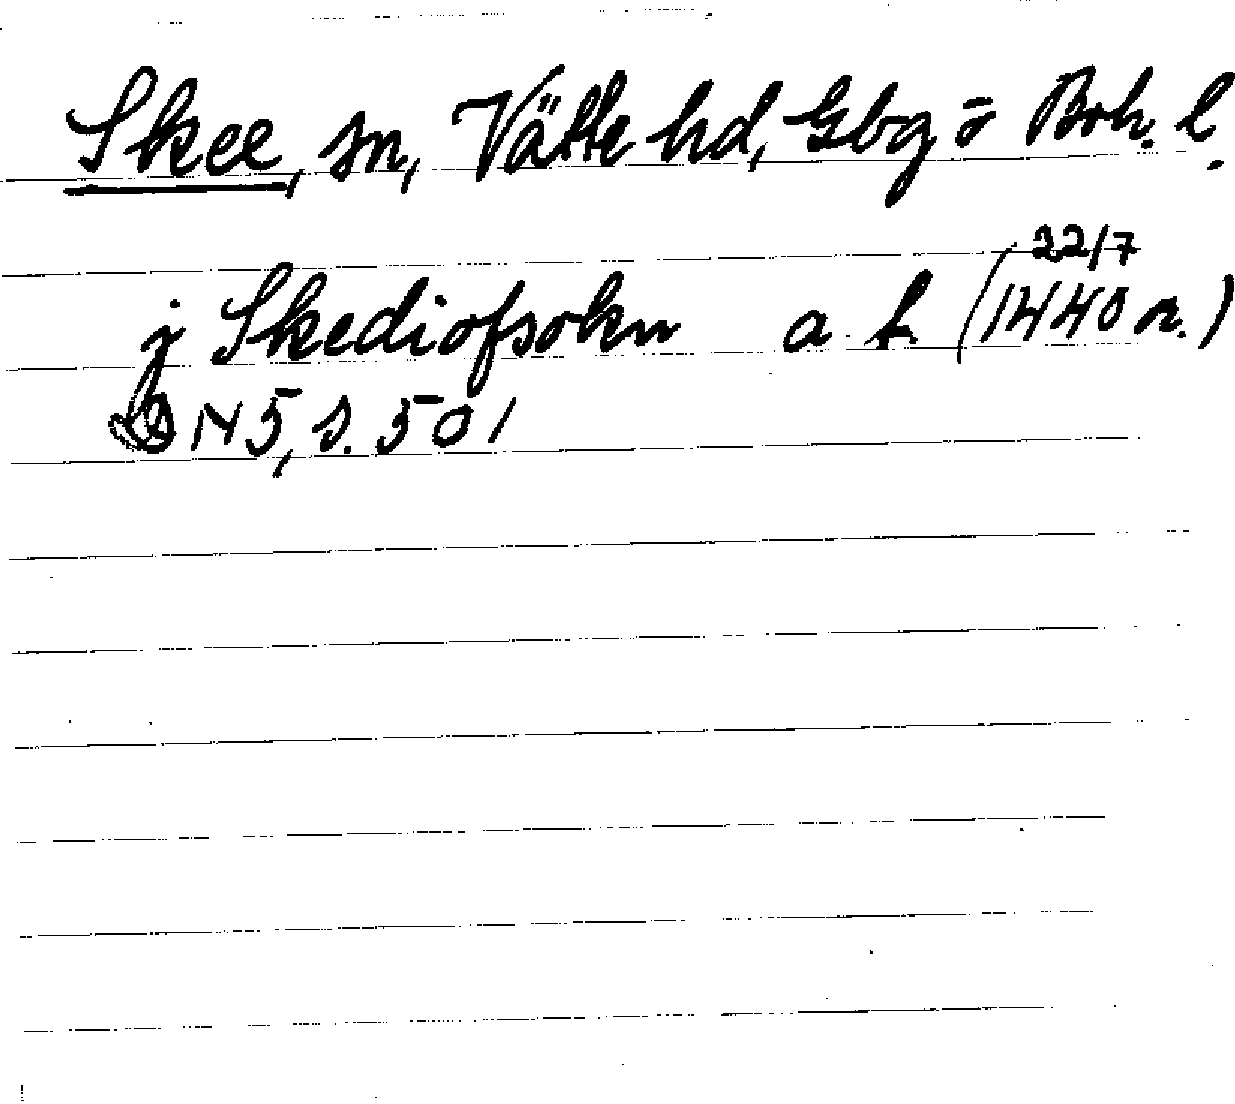 Skee, sn, Vätte hd, Gbg o Boh. l.
j Skediofsokn a. f. (22/7 1440 n.)
DN 5, s. 501